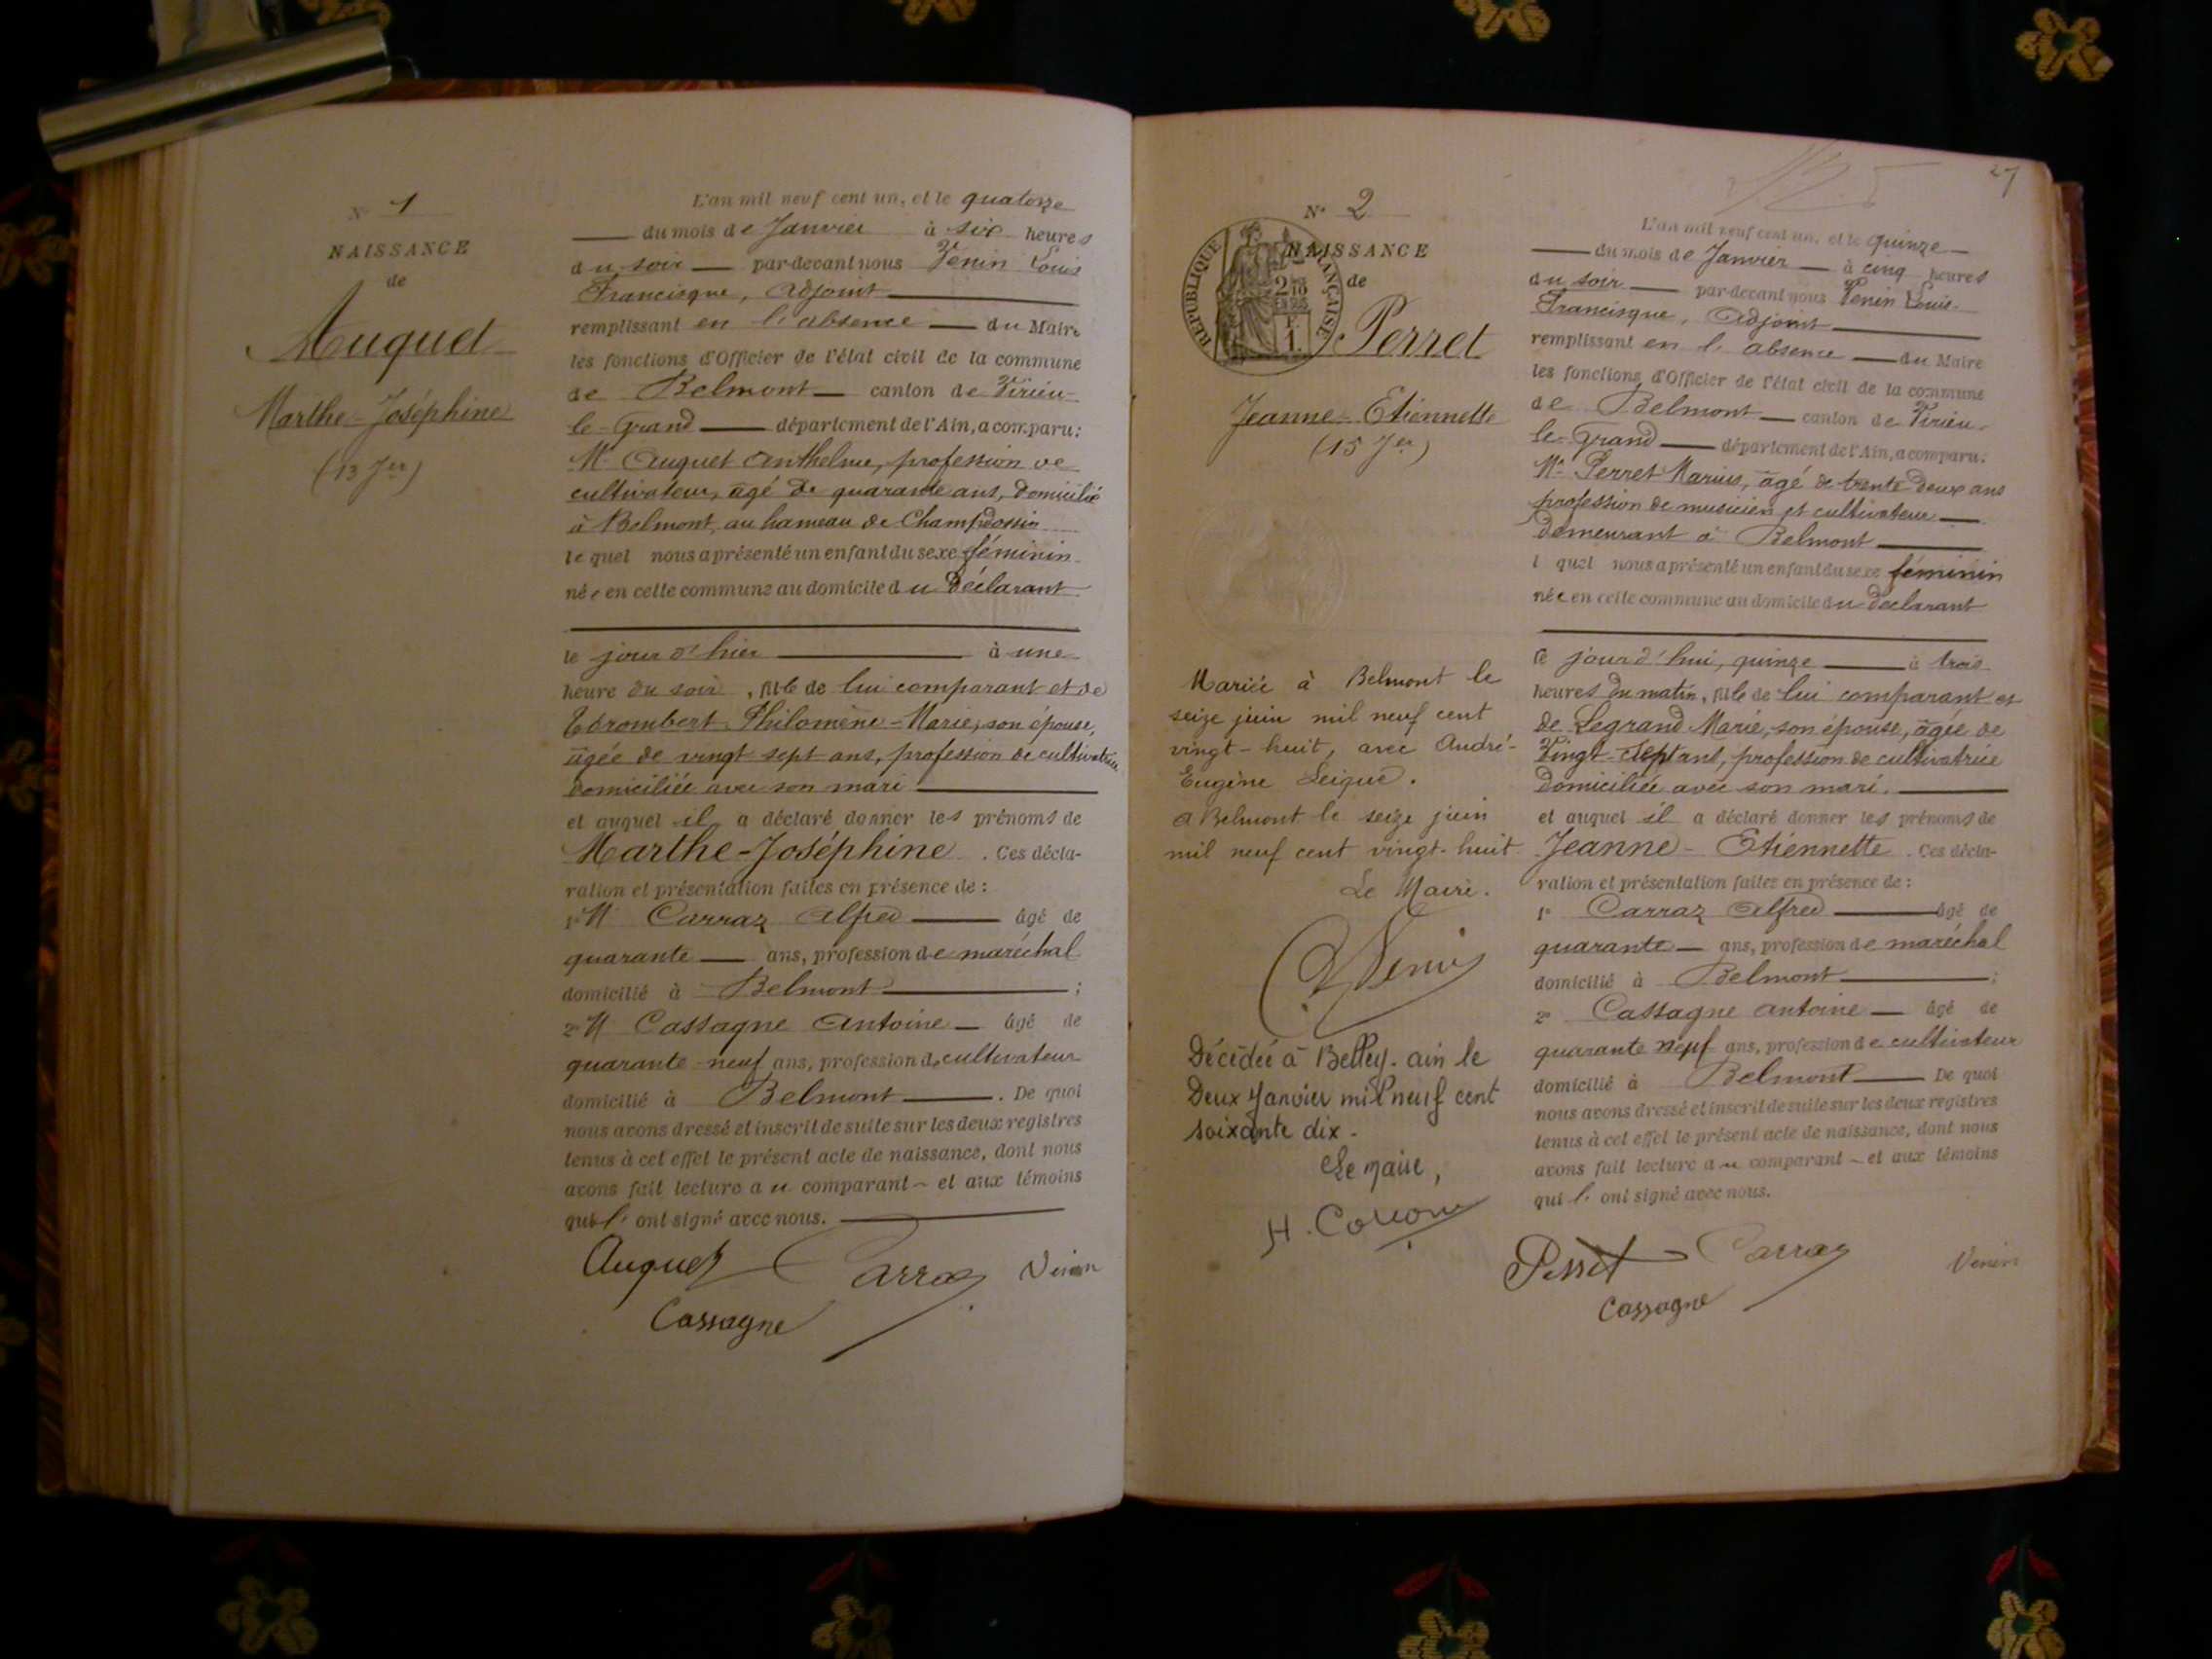 N° 1
NAISSANCE
de
Auquet
Marthe-Joséphine
(13 Jer)
L'an mil neuf cent un, et le quatorze
du mois de Janvier à six heures
du soir par-devant nous Venin Louis
Francisque, Adjoint
remplissant en l'absence du Maire
les fonctions d'Officier de l'état civil de la commune
de Belmont canton de Virieu-
le-Grand département de l'Ain, a comparu:
Mr Auquet Anthelme, profession de
cultivateur, âgé de quarante ans, domicilié
à Belmont, au hameau de Champdossin
lequel nous a présenté un enfant du sexe féminin
née en cette commune au domicile du Déclarant
le jour d'hier à une
heure du soir, fille de lui comparant et de
Philomène-Marie, son épouse,
âgée de vingt sept ans, profession de cultivatrice
domiciliée avec son mari
et auquel il a déclaré donner les prénoms de
Marthe-Joséphine. Ces décla-
ration et présentation faites en présence de:
1° M Carraz Alfred âgé de
quarante ans, profession de maréchal
domicilié à Belmont ;
2° M Cassagne Antoine âgé de
quarante-neuf ans, profession de cultivateur
domicilié à Belmont. De quoi
nous avons dressé et inscrit de suite sur les deux registres
tenus à cet effet le présent acte de naissance, dont nous
avons fait lecture au comparant et aux témoins
qui l'ont signé avec nous.
Auquet Carraz Venin
Cassagne
27
N° 2
NAISSANCE
de
RÉPUBLIQUE FRANÇAISE
Perret
Jeanne-Etiennette
(15 Jer)
Mariée à Belmont le
seize juin mil neuf cent
vingt-huit, avec André-
Eugène
A Belmont le seize juin
mil neuf cent vingt-huit
Le Maire.
Décédée à Belley. ain le
Deux Janvier mil neuf cent
soixante dix.
Le maire,
L'an mil neuf cent un, et le quinze
du mois de Janvier à cinq heures
du soir par-devant nous Venin Louis
Francisque, Adjoint
remplissant en l'absence du Maire
les fonctions d'Officier de l'état civil de la commune
de Belmont canton de Virieu-
le-Grand département de l'Ain, a comparu:
Mr Perret Marius, âgé de trente deux ans
profession de musicien et cultivateur
demeurant à Belmont
l quel nous a présenté un enfant du sexe féminin
née en cette commune au domicile du déclarant
ce jourd'hui, quinze à trois
heures du matin, fille de lui comparant et
de Legrand Marie, son épouse, âgée de
Vingt-sept ans, profession de cultivatrice
Domiciliée avec son mari.
et auquel il a déclaré donner les prénoms de
Jeanne-Etiennette. Ces décla-
ration et présentation faites en présence de:
1° Carraz Alfred âgé de
quarante ans, profession de maréchal
domicilié à Belmont ;
2° Cassagne Antoine âgé de
quarante neuf ans, profession de cultivateur
domicilié à Belmont De quoi
nous avons dressé et inscrit de suite sur les deux registres
tenus à cet effet le présent acte de naissance, dont nous
avons fait lecture au comparant et aux témoins
qui l'ont signé avec nous.
Perret Carraz Venin
Cassagne